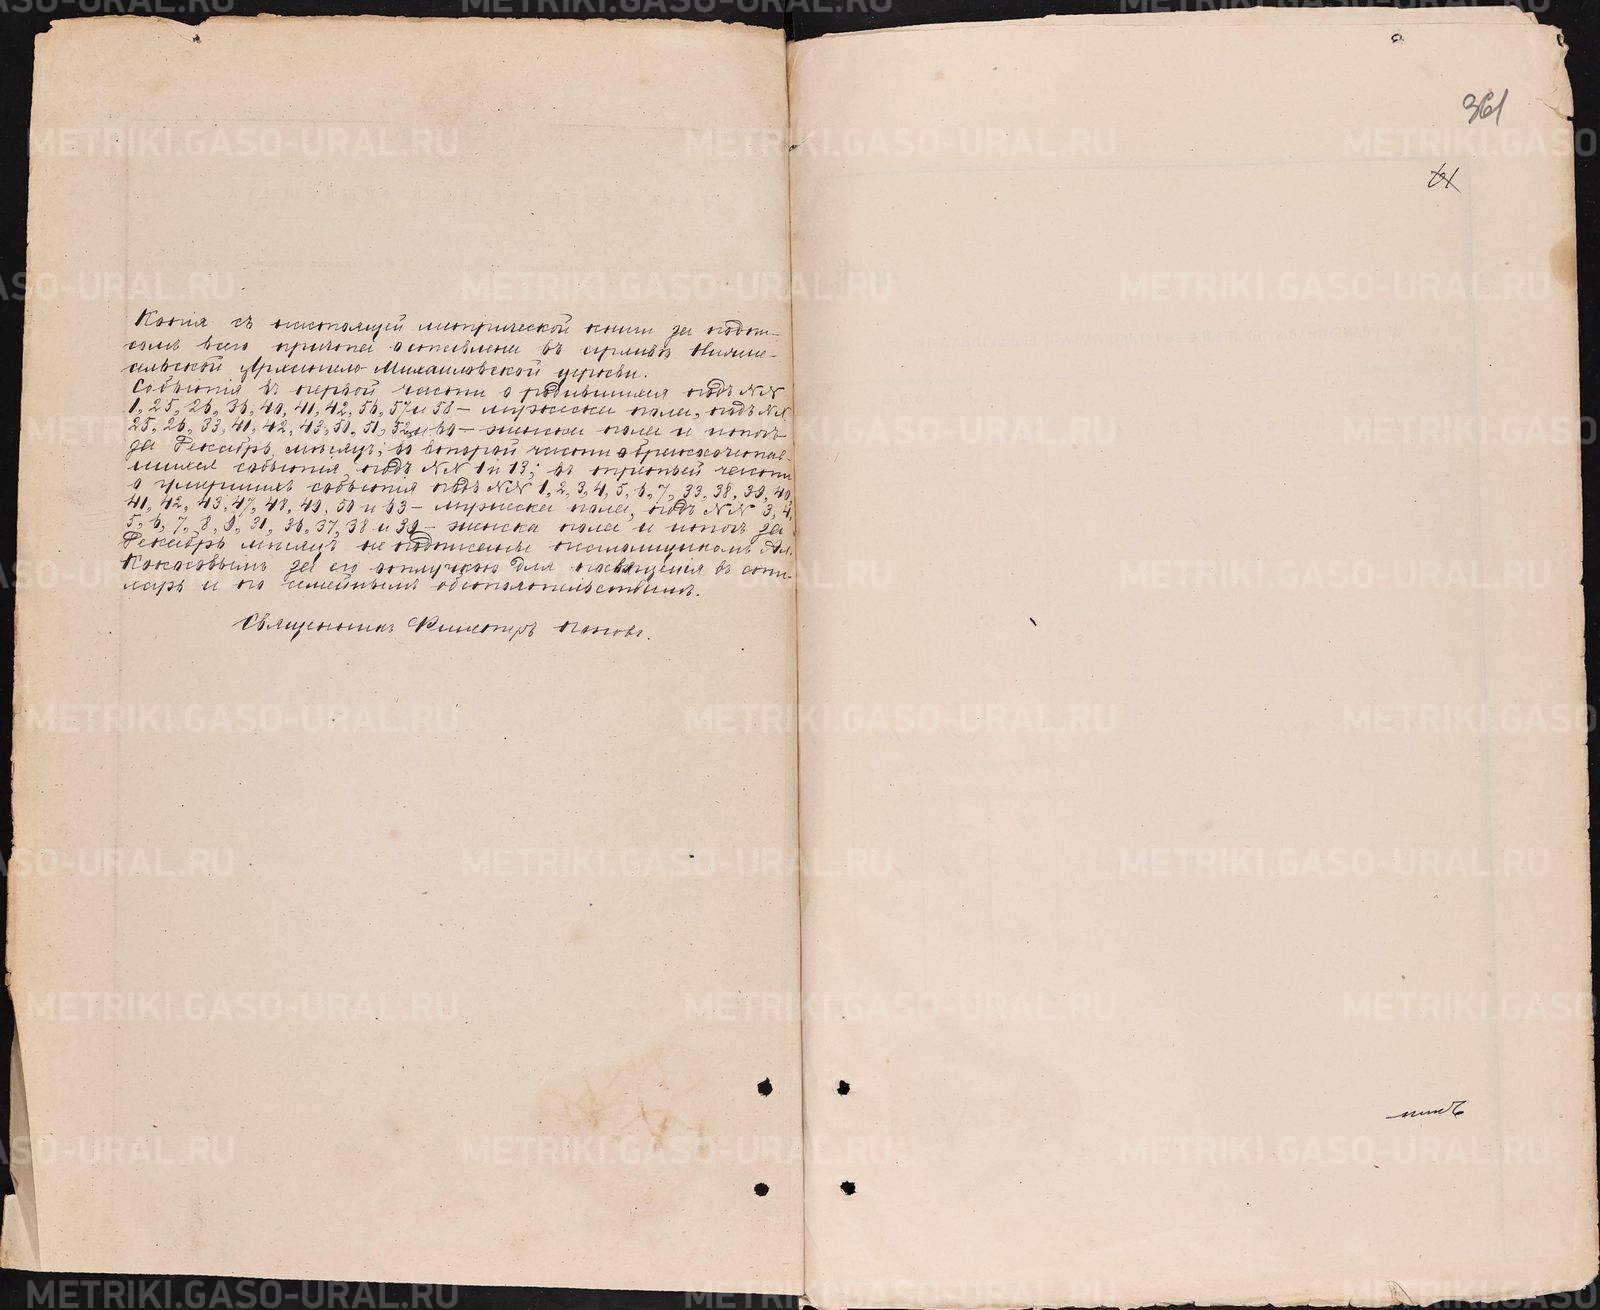 Копія съ настоящей метрической книги за подпи-
сомъ всего причта оставлена въ архивѣ Нижне-
сельской Архангело Михаиловской церкви.
Событія въ первой части о родившихся подъ №№
1, 25, 26, 36, 40, 41, 42, 56, 57 и 58 – мужеска пола, подъ №№
25, 26, 33, 41, 42, 43, 50, 51, 52 и 60 – женска пола и итогъ
за Декабрь мѣсяцъ; во второй части о бракосочетав-
шихся событія подъ №№ 1 и 13; въ третьей части
о умершихъ событія подъ №№ 1, 2, 3, 4, 5, 6, 7, 33, 38, 39, 40,
41, 42, 43, 47, 48, 49, 50 и 63 – мужеска пола, подъ №№ 3, 4,
5, 6, 7, 8, 9, 31, 36, 37, 38 и 39 – женска пола и итогъ за
Декабрь мѣсяцъ не подписаны псаломщикомъ Ал.
за его отлучкою для посвященія въ сти-
харь и по семейнымъ обстоятельствамъ.
Священникъ Поповъ.
361
61
METRIKI.GASO-URAL.RU